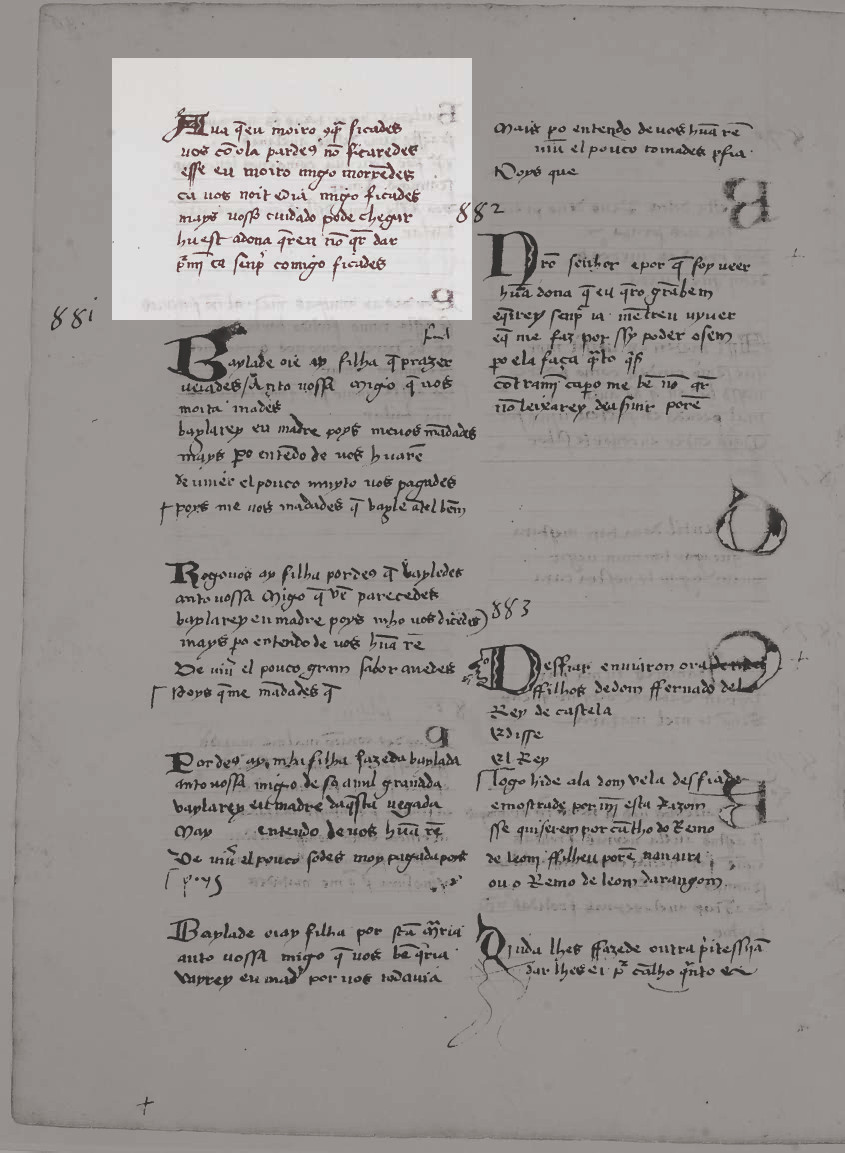 Aua q̄eu moiro 9q̄ ficades
uos cōsola pardeꝯ nō ficaredes
esse eu moiro migo morrēdes
ca uos noit e dia migo ficades
mays uossō cuidado pode chegar
huest a dona q̄ren nō q̄r dar
p̄ mī ca semp̄ comigo ficades
881
Baylade oie ay filha q̄ prazer
ueiades anto uossā migo q̄ uos
moita mades
baylarey eu madre poys meuos mādades
mays po entēdo de uos huā rē
de uiuer el pouco muyto uos pagades
poys me uos mādades q̄ bayle antel bēm
Rogouos ay filha por deꝯ q̄ bayledes
anto uossā migo q̄ bē parecedes
baylarey eu madre poys mho uos dizedes
mays po entendo de uos huā rē
De uiū el pouco gram sabor auedes
Poys q̄me mādades q̄
Por deꝯ ay mha filha fazeda baylada
anto uossō migo de so a mil granada
baylarey eu madre daq̄sta uegada
May entendo de uos huā rē
De uiū el pouco sodes moy pagada poys
poys
Baylade oi ay filha por stā Mria
anto uossā migo q̄ uos bē q̄ria
baylrey eu mad̄ por uos todauia
Mais po entendo de uos huā rē
uiū el pouco tomades pfia
Poys que
882
Nrō senhor e por q̄ foy ueer
huā dona q̄ eu q̄ro grābem
e q̄irey semp̄ ia mētreu uyuer
eq̄ me faz por ssy poder o sem
po ela faça q̄to q̄s
cōtramī ca po me bē nō q̄r
nō leixarey deasiruir porē
883
Desffiar enuiaron ora
ffilhos dedom ffernādo del
Rey de castela
E disse
el Rey
logo hide ala dom uela desfiade
emostrade por mī esta Razom
sse quiserem por cālho do Reino
de leom ffilheu porē nauarra
ou o Reino de leom daragom
Ainda lhes ffazede outra p̄itessyā
dar lhes ei p̄ cālho q̄nto ei